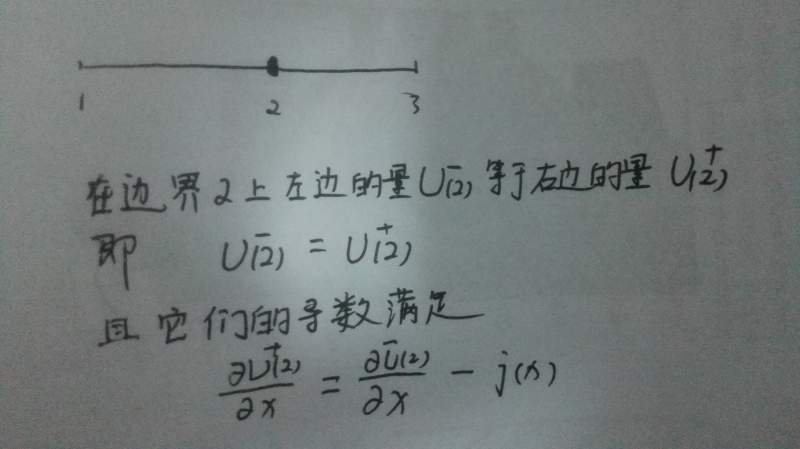 1 2 3
在边界2上左边的量U⁻(2)等于右边的量 U⁺(2)
即 U⁻(2) = U⁺(2)
且它们的导数满足
∂U⁺(2)/∂x = ∂U⁻(2)/∂x - j(x)